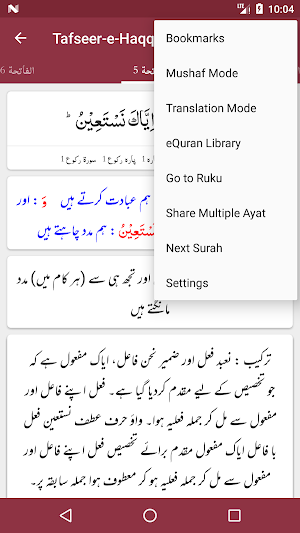 10:04
Tafseer-e-Haqq
Bookmarks
Mushaf Mode
Translation Mode
eQuran Library
Go to Ruku
Share Multiple Ayat
Next Surah
Settings
الفاتحة 6
5
اِیَّاكَ نَسْتَعِیْنُ
پارہ رکوع 1 سورۃ رکوع 1
ہم عبادت کرتے ہیں وَ : اور
: ہم مدد چاہتے ہیں
اور تجھ ہی سے (ہر کام میں) مدد
مانگتے ہیں
ترکیب : نعبد فعل اور ضمیر نحن فاعل، ایاک مفعول ہے کہ
جو تخصیص کے لیے مقدم کردیا گیا ہے۔ فعل اپنے فاعل اور
مفعول سے مل کر جملہ فعلیہ ہوا۔ واؤ حرف عطف نستعین فعل
با فاعل ایاک مفعول مقدم برائے تخصیص فعل اپنے فاعل اور
مفعول سے مل کر جملہ فعلیہ ہو کر معطوف ہوا جملہ سابقہ پر۔